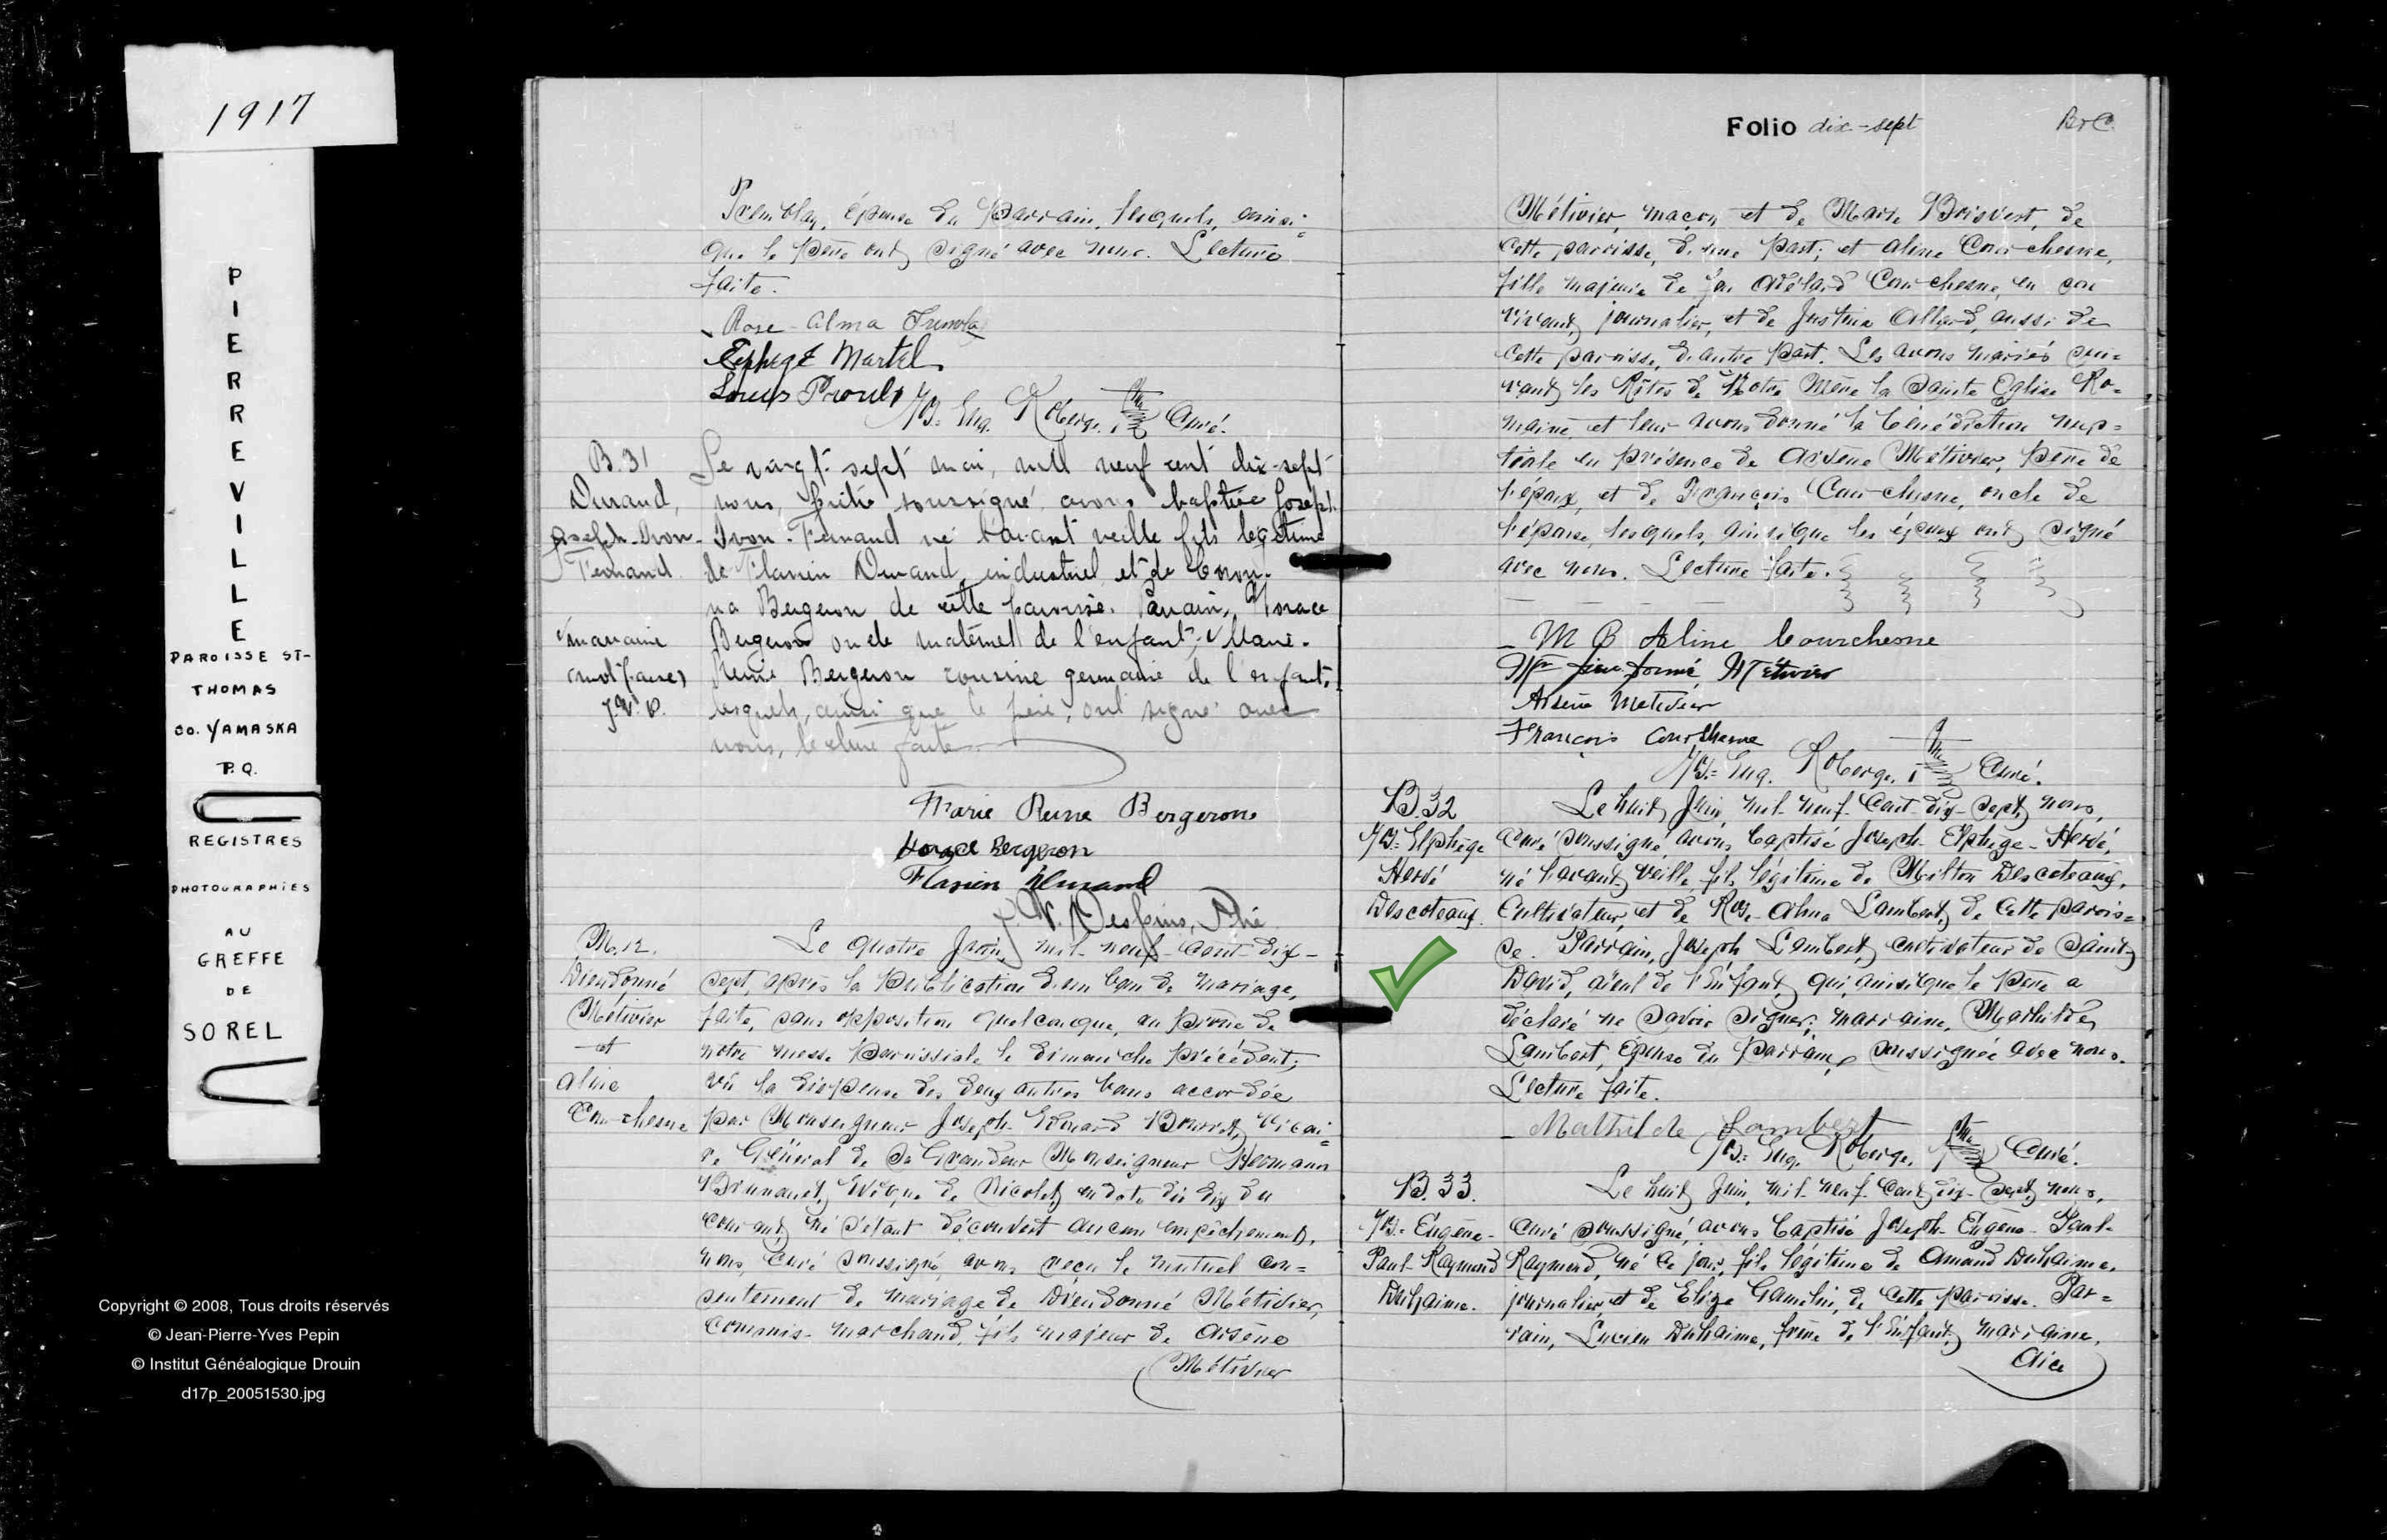 1917
PIERREVILLE
PAROISSE ST-
THOMAS
CO. YAMASKA
P.Q.
REGISTRES
PHOTOGRAPHIES
AU
GREFFE
DE
SOREL
Copyright © 2008, Tous droits réservés
© Jean-Pierre-Yves Pepin
© Institut Généalogique Drouin
d17p_20051530.jpg
Tremblay, épouse du Parrain, lesquels, ainsi
que le Père ont signé avec nous. Lecture
faite.
Rose-Alma Trembla
Elphège Martel
Louis Proulx
Jos. Eug. Roberge, Ptre Curé.
B. 31
Durand,
Joseph-Ivon-
Fernand
Le vingt-sept mai, mil neuf cent dix-sept
nous, prêtre soussigné avons baptisé Joseph
Ivon-Fernand né l'avant veille fils légitime
de Flavien Durand, industriel et de Coron-
na Bergeron de cette paroisse. Parrain, Horace
Bergeron oncle maternel de l'enfant; Marie-
Reine Bergeron cousine germaine de l'enfant,
lesquels, ainsi que le père, ont signé avec
nous, lecture faite.
marraine
J.V.D.
Marie Reine Bergeron
Horace Bergeron
Flavien Durand
J. V. Desfossés, Ptre
M. 12.
Dieudonné
Métivier
et
Aline
Courchesne
Le quatre Juin, mil-neuf-cent-dix-
sept, après la Publication d'un ban de mariage,
faite, sans opposition quelconque, au prône de
notre messe Paroissiale le dimanche précédent;
vu la dispense des deux autres bans accordée
par Monseigneur Joseph-Edouard Bourret, Vicai-
re Général de Sa Grandeur Monseigneur Hermann
Brunault, Evêque de Nicolet, en date du dix du
courant, ne s'étant découvert aucun empêchement,
nous, Curé soussigné, avons reçu le mutuel con=
sentement de mariage de Dieudonné Métivier,
Commis-marchand, fils majeur de Arsène
Métivier
Folio dix-sept
Métivier, maçon et de Marie Boisvert, de
cette paroisse, d'une Part; et Aline Courchesne,
fille majeure de feu Adélard Courchesne, en son
vivant, journalier, et de Justine Allard, aussi de
cette paroisse, d'autre Part. Les avons mariés sui-
vant les Rites de Notre Mère la Sainte Eglise Ro-
maine et leur avons donné la bénédiction nup=
tiale en présence de Arsène Métivier, Père de
l'époux, et de François Courchesne, oncle de
l'épouse, lesquels, ainsi que les époux ont signé
avec nous. Lecture faite.
M B Aline Courchesne
Métivier
Arsène Metivier
François Courchesne
Jos. Eug. Roberge, Ptre Curé.
B. 32
Jos=Elphège
Hervé
Descoteaux.
Le huit Juin, mil-neuf-cent-dix-sept, nous,
Curé soussigné avons baptisé Joseph-Elphège-Hervé,
né l'avant veille, fils légitime de Milton Descoteaux,
Cultivateur, et de Rose-Alma Lambert, de cette parois=
se. Parrain, Joseph Lambert, cultivateur de Saint
David, aïeul de l'Enfant, qui, ainsi que le Père a
déclaré ne savoir signer; marraine, Mathilde
Lambert, Epouse du Parrain, soussignée avec nous.
Lecture faite.
Mathilde Lambert
Jos. Eug. Roberge, Ptre Curé.
B. 33.
Jos=Eugène-
Paul-Raymond
Duhaime.
Le huit Juin, mil-neuf-cent-dix-sept, nous,
Curé soussigné, avons baptisé Joseph-Eugène-Paul-
Raymond, né ce jour, fils légitime de Amand Duhaime,
journalier, et de Eliza Gamelin, de cette paroisse. Par=
rain, Lucien Duhaime, frère de l'Enfant, marraine,